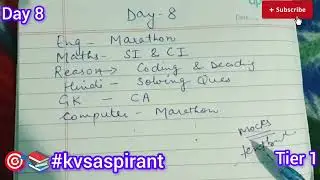 Day 8
Subscribe
Day-8
Eng - Marathon
Maths - SI & CI
Reason > Coding & Decoding
Hindi - Solving Ques
GK - CA
Computer - Marathon
MOCKS
🎯📚#kvsaspirant
Tier 1